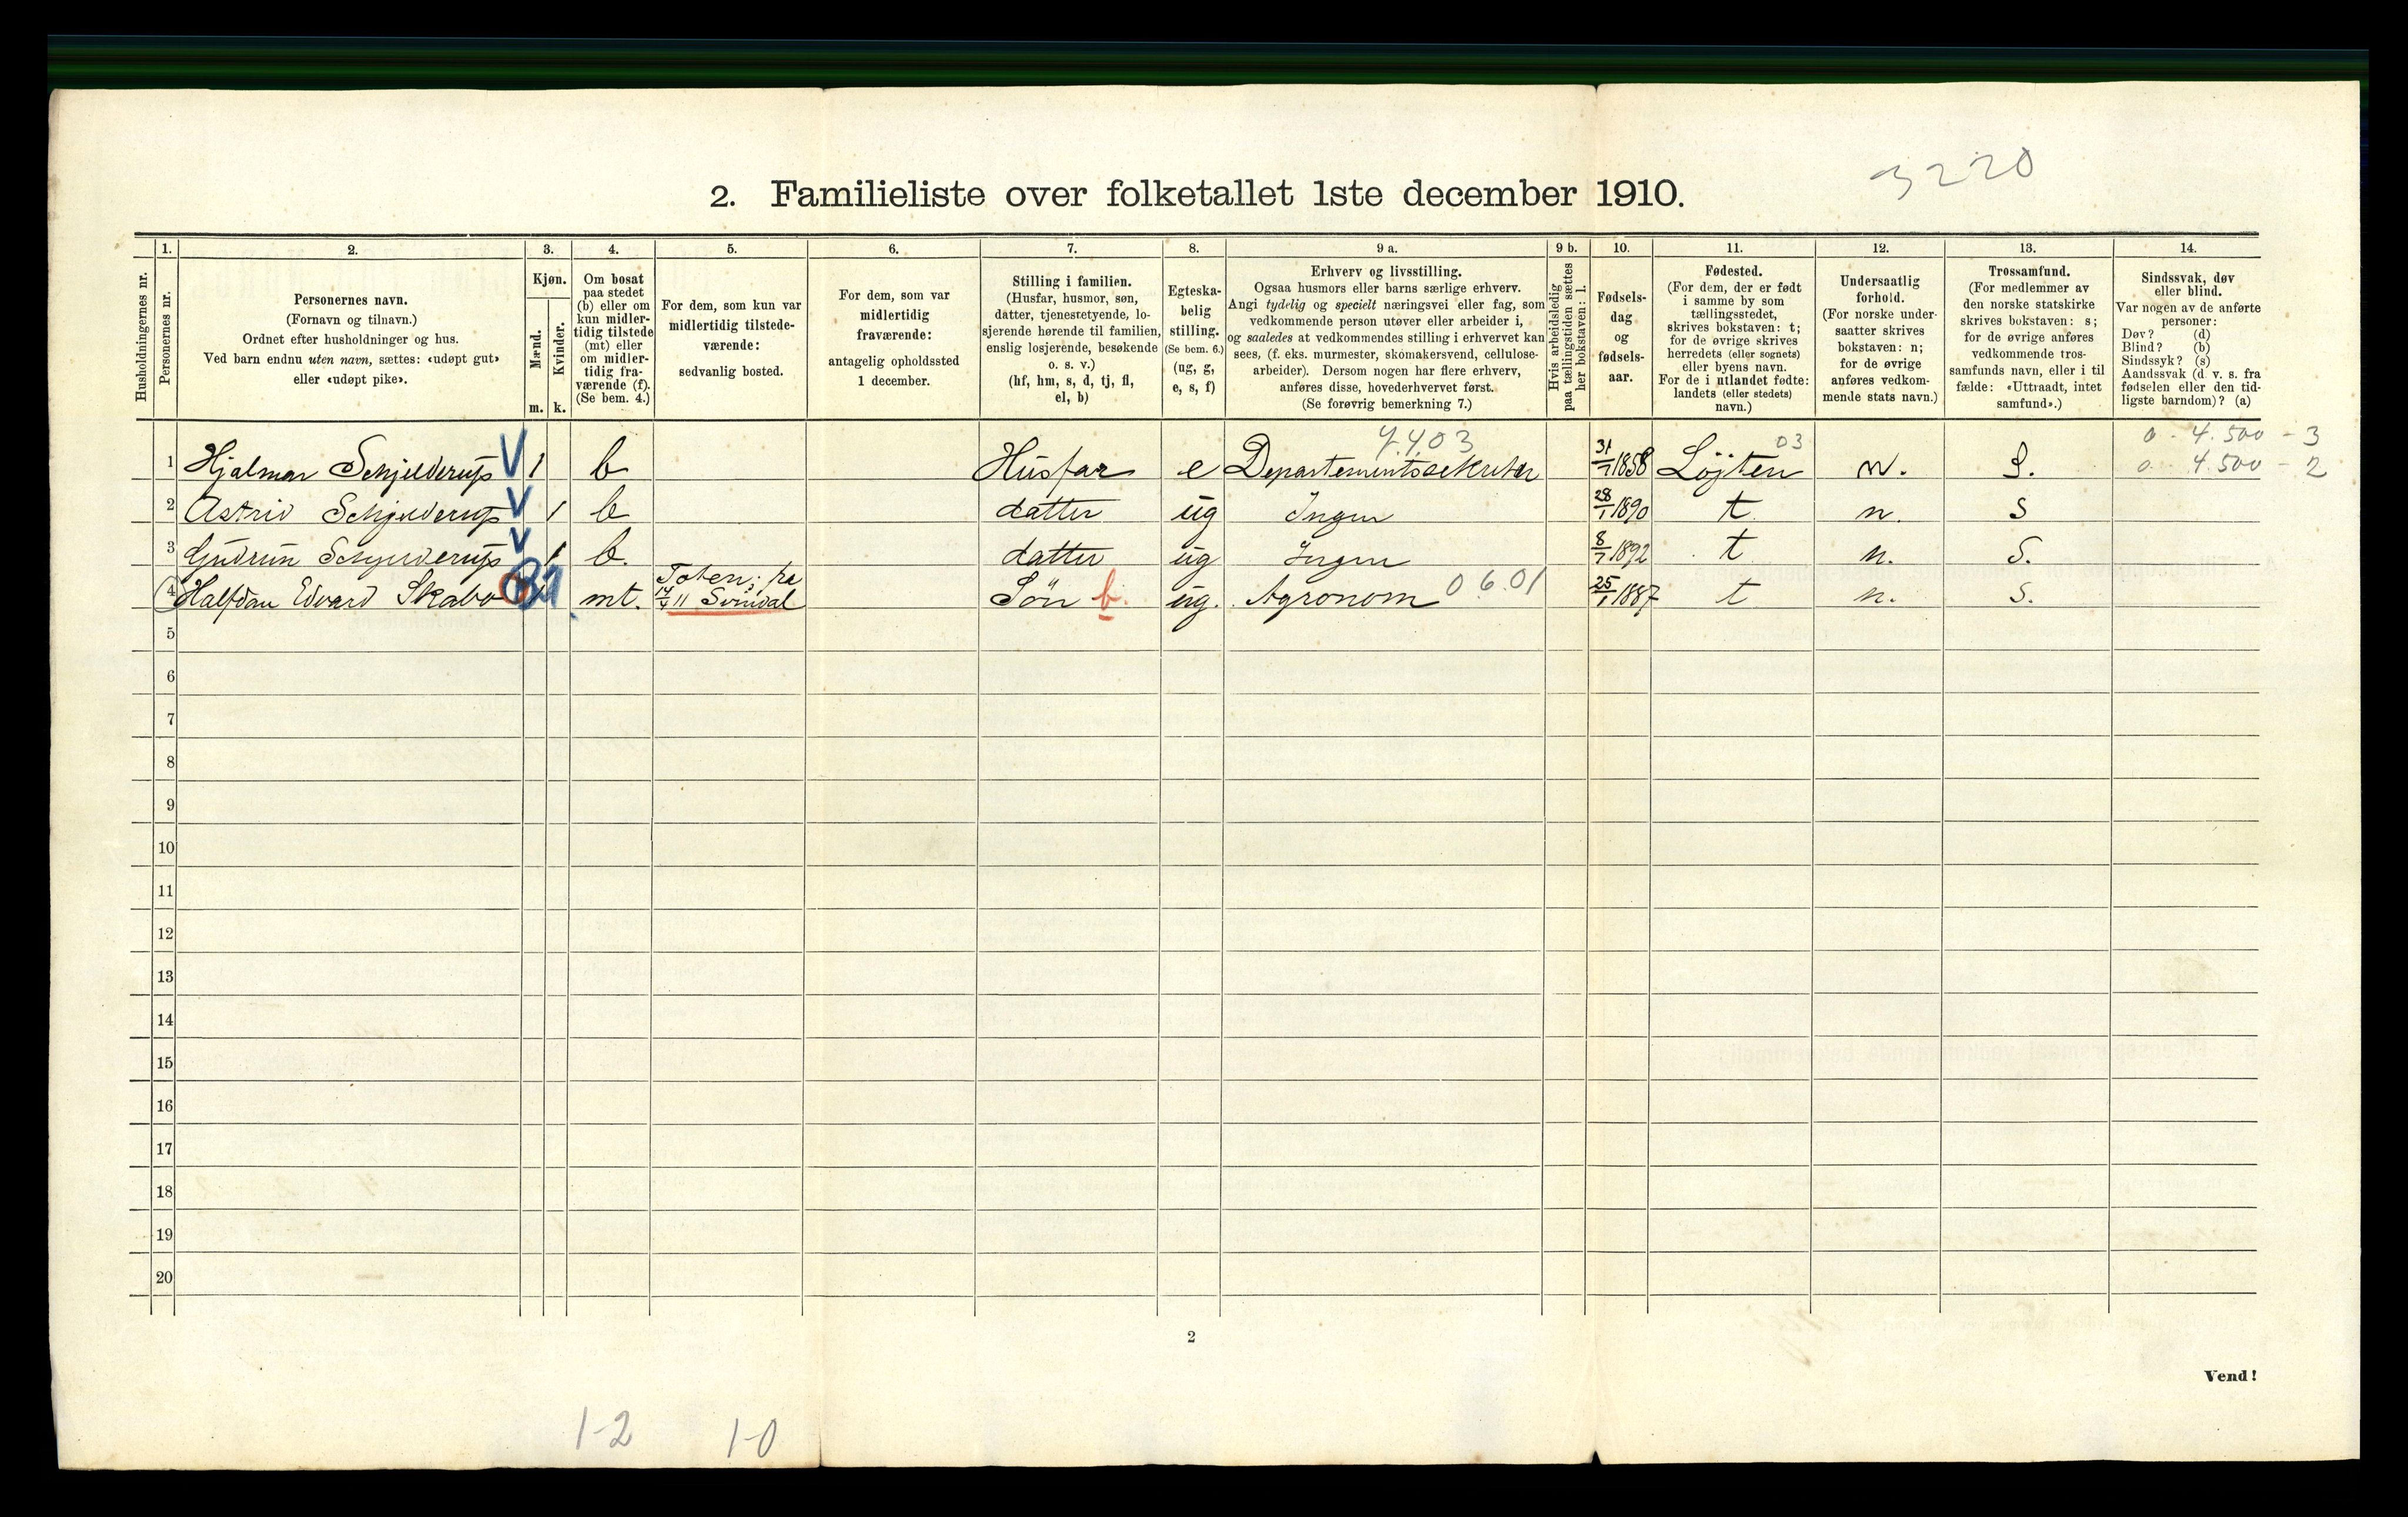 3220
2. Familieliste over folketallet 1ste december 1910.
Husholdningernes nr.
1.
Personernes nr.
2.
Personernes navn.
(Fornavn og tilnavn.)
Ordnet efter husholdninger og hus.
Ved barn endnu uten navn, sættes: «udøpt gut»
eller «udøpt pike».
3.
Kjøn.
Mænd.
m.
Kvinder.
k.
4.
Om bosat
paa stedet
(b) eller om
kun midler-
tidig tilstede
(mt) eller
om midler-
tidig fra-
værende (f).
(Se bem. 4.)
5.
For dem, som kun var
midlertidig tilstede-
værende:
sedvanlig bosted.
6.
For dem, som var
midlertidig
fraværende:
antagelig opholdssted
1 december.
7.
Stilling i familien.
(Husfar, husmor, søn,
datter, tjenestetyende, lo-
sjerende hørende til familien,
enslig losjerende, besøkende
o. s. v.)
(hf, hm, s, d, tj, fl,
el, b)
8.
Egteska-
belig
stilling.
(Se bem. 6.)
(ug, g,
e, s, f)
9 a.
Erhverv og livsstilling.
Ogsaa husmors eller barns særlige erhverv.
Angi tydelig og specielt næringsvei eller fag, som
vedkommende person utøver eller arbeider i,
og saaledes at vedkommendes stilling i erhvervet kan
sees, (f. eks. murmester, skomakersvend, cellulose-
arbeider). Dersom nogen har flere erhverv,
anføres disse, hovederhvervet først.
(Se forøvrig bemerkning 7.)
9 b.
Hvis arbeidsledig
paa tællingstiden sættes
her bokstaven: l.
10.
Fødsels-
dag
og
fødsels-
aar.
11.
Fødested.
(For dem, der er født
i samme by som
tællingsstedet,
skrives bokstaven: t;
for de øvrige skrives
herredets (eller sognets)
eller byens navn.
For de i utlandet fødte:
landets (eller stedets)
navn.)
12.
Undersaatlig
forhold.
(For norske under-
saatter skrives
bokstaven: n;
for de øvrige
anføres vedkom-
mende stats navn.)
13.
Trossamfund.
(For medlemmer av
den norske statskirke
skrives bokstaven: s;
for de øvrige anføres
vedkommende tros-
samfunds navn, eller i til
fælde: «Uttraadt, intet
samfund».)
14.
Sindssvak, døv
eller blind.
Var nogen av de anførte
personer:
Døv? (d)
Blind? (b)
Sindssyk? (s)
Aandssvak (d. v. s. fra
fødselen eller den tid-
ligste barndom)? (a)
7.403 03 0 - 4.500 - 3
1 Hjalmar Schjelderup V 1 b Husfar e Departementssekretær 31/7 1858 Løjten n. S. 0 4.500 - 2
2 Astrid Schjelderup V 1 b datter ug Ingen 28/1 1890 t n. S
3 Gudrun Schjelderup V 1 b. datter ug Ingen 8/7 1892 t n. S.
4 Halfdan Edvard Skabo mt. Toten; fra
Svindal Søn b. ug. Agronom 06.01 25/1 1887 t n. S.
5
6
7
8
9
10
11
12
13
14
15
16
17
18
19
20
2
Vend!
1-2 1-0